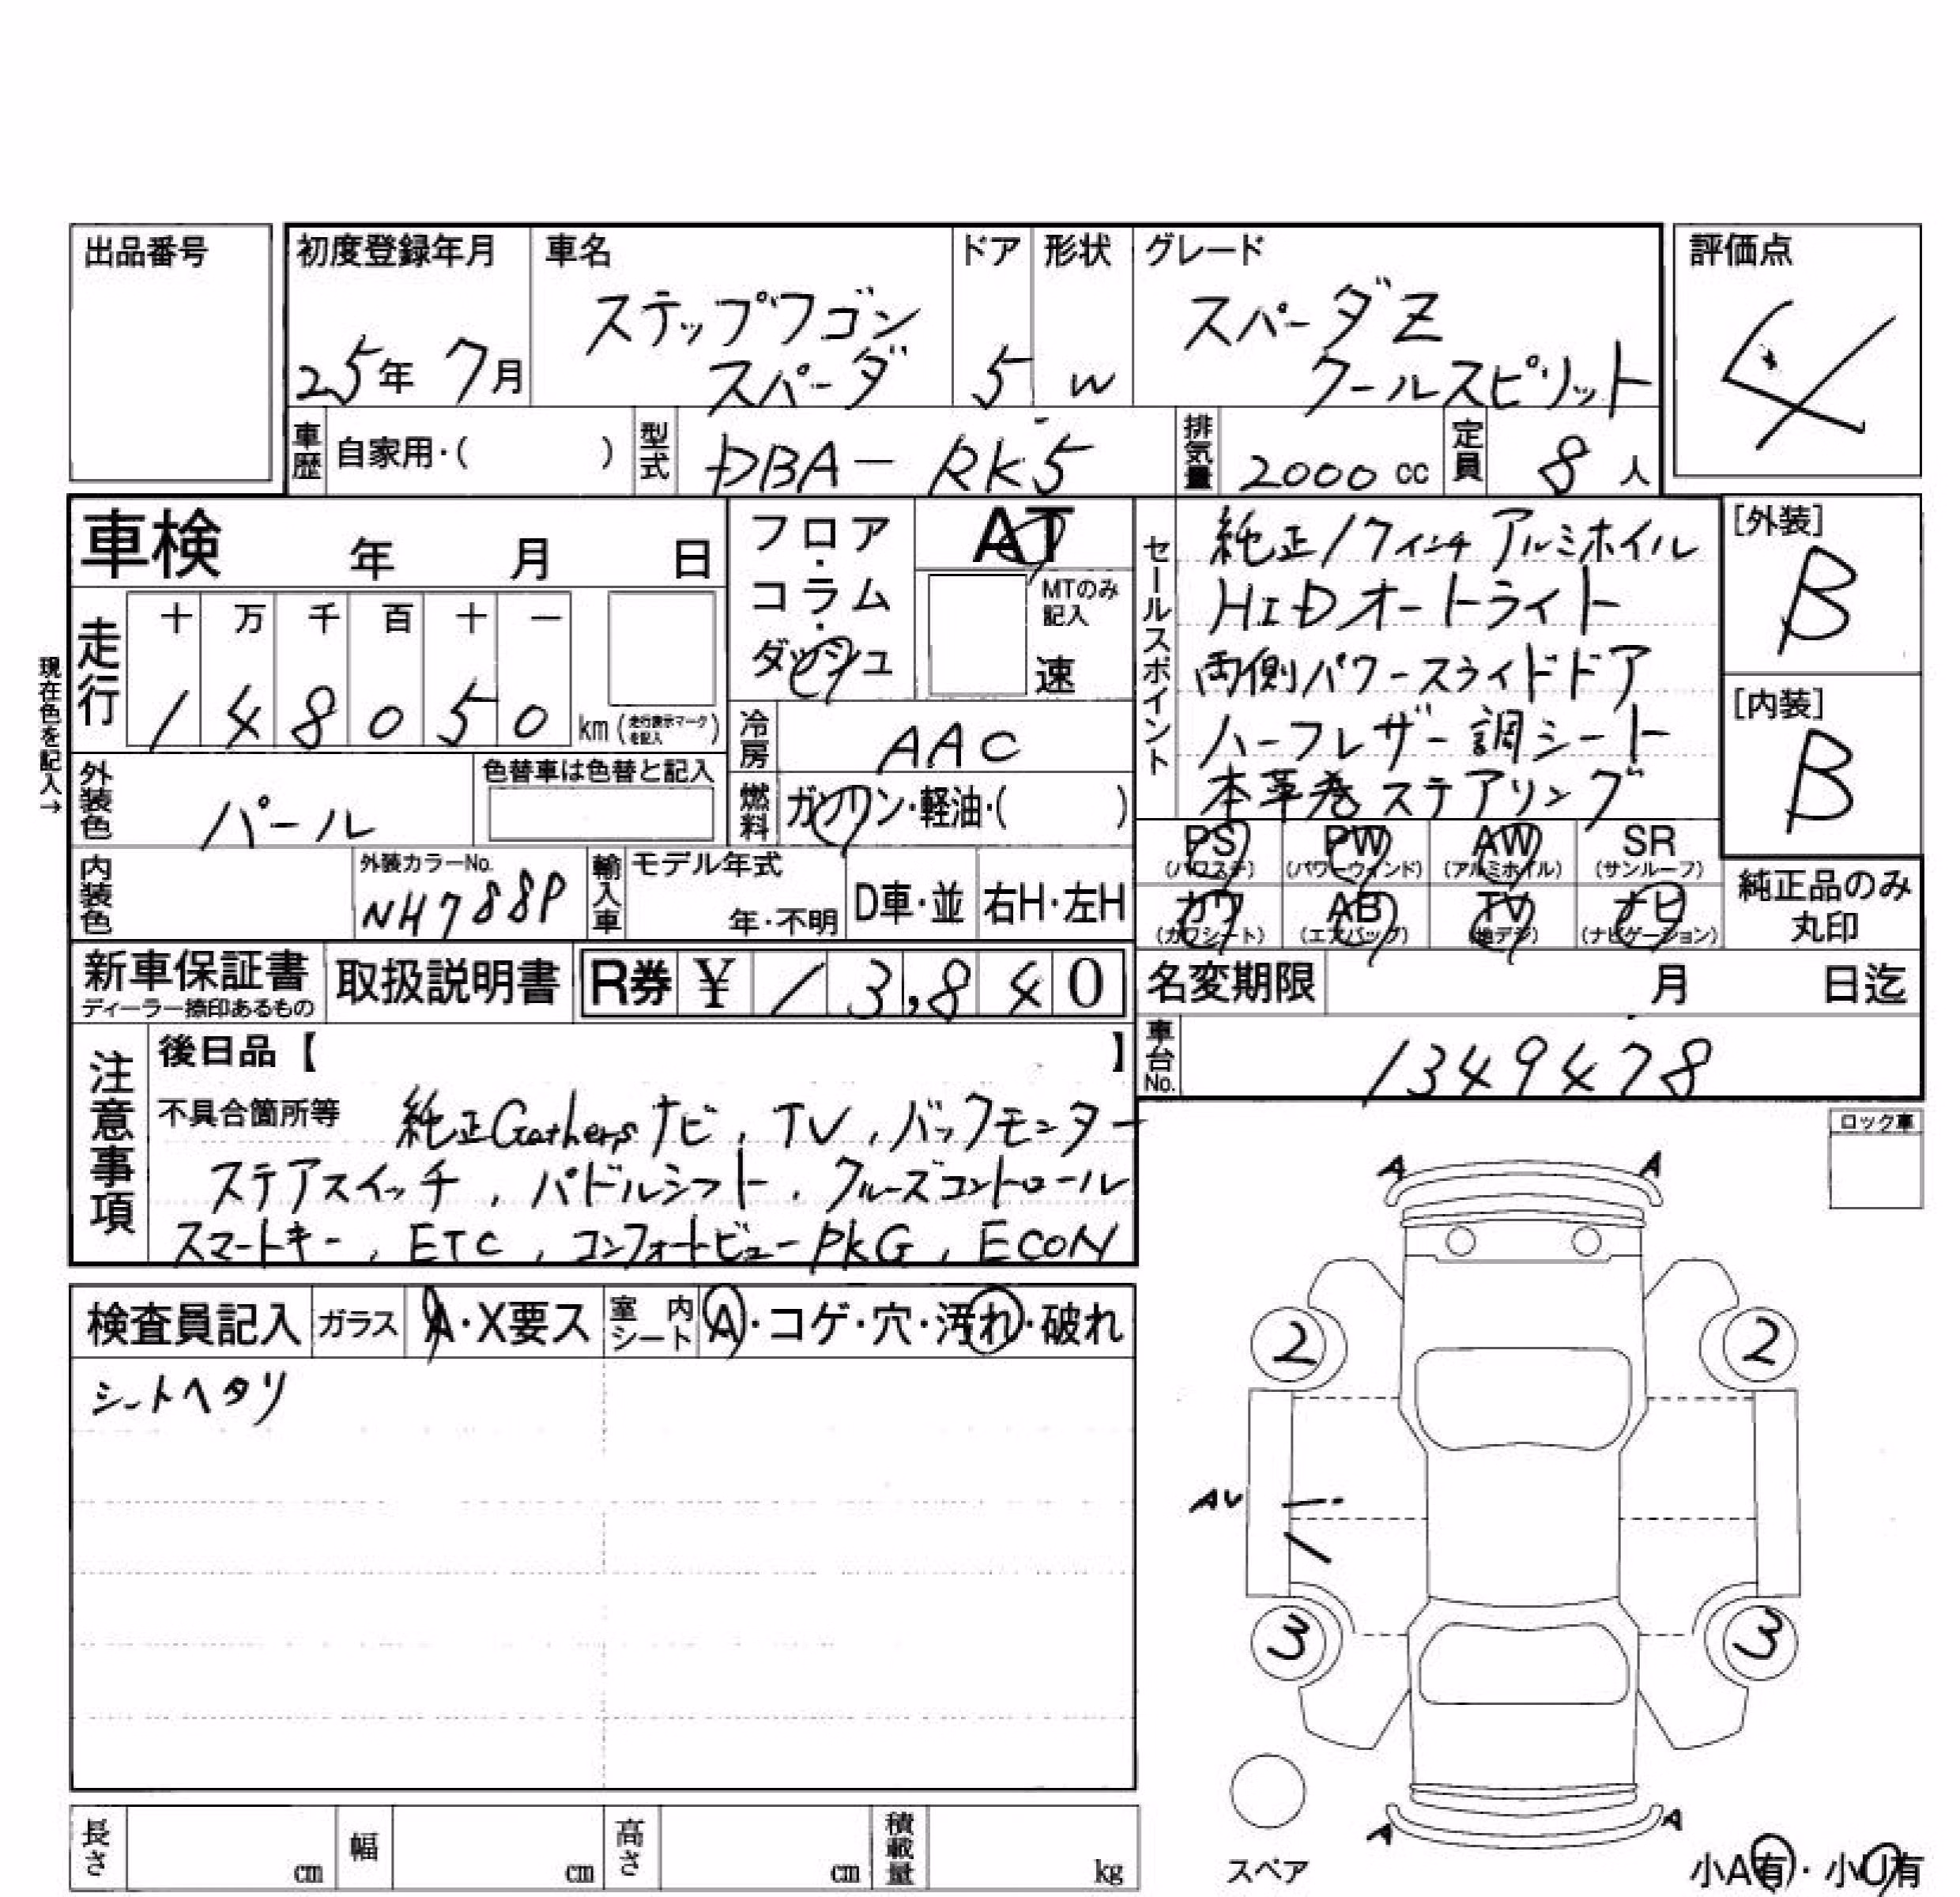 出品番号
初度登録年月
25年 7月
車名
ステップワゴン
スパーダ
ドア
5
形状
W
グレード
スパーダZ
クールスピリット
評価点
4
車歴 自家用・( )
型式 DBA- RK5
排気量 2000 cc
定員 8 人
車検 年 月 日
フロア・コラム・ダッシュ
AT
MTのみ記入
速
走行
十 万 千 百 十 一
1 4 8 0 5 0 km (走行表示マークを記入)
現在色を記入→
冷房 AAC
外装色 パール
色替車は色替と記入
燃料 ガソリン・軽油・( )
内装色
外装カラーNo.
NH788P
輸入車
モデル年式
年・不明
D車・並
右H・左H
セールスポイント
純正17インチ アルミホイル
HIDオートライト
両側パワースライドドア
ハーフレザー調シート
本革巻ステアリング
[外装]
B
[内装]
B
PS (パワステ)
PW (パワーウィンド)
AW (アルミホイル)
SR (サンルーフ)
カワ (カワシート)
AB (エアバッグ)
TV (地デジ)
ナビ (ナビゲーション)
純正品のみ
丸印
新車保証書
ディーラー捺印あるもの
取扱説明書
R券 ¥ 13,840
名変期限 月 日迄
車台No. 1349478
注意事項
後日品【 】
不具合箇所等 純正Gathersナビ, TV, バックモニター
ステアスイッチ, パドルシフト, クルーズコントロール
スマートキー, ETC, コンフォートビューPKG, ECON
ロック車
検査員記入 ガラス A・X要ス 室内シート A・コゲ・穴・汚れ・破れ
シートヘタリ
A A
2 2
AU
3 3
A A
スペア
小A有・小U有
長さ cm 幅 cm 高さ cm 積載量 kg